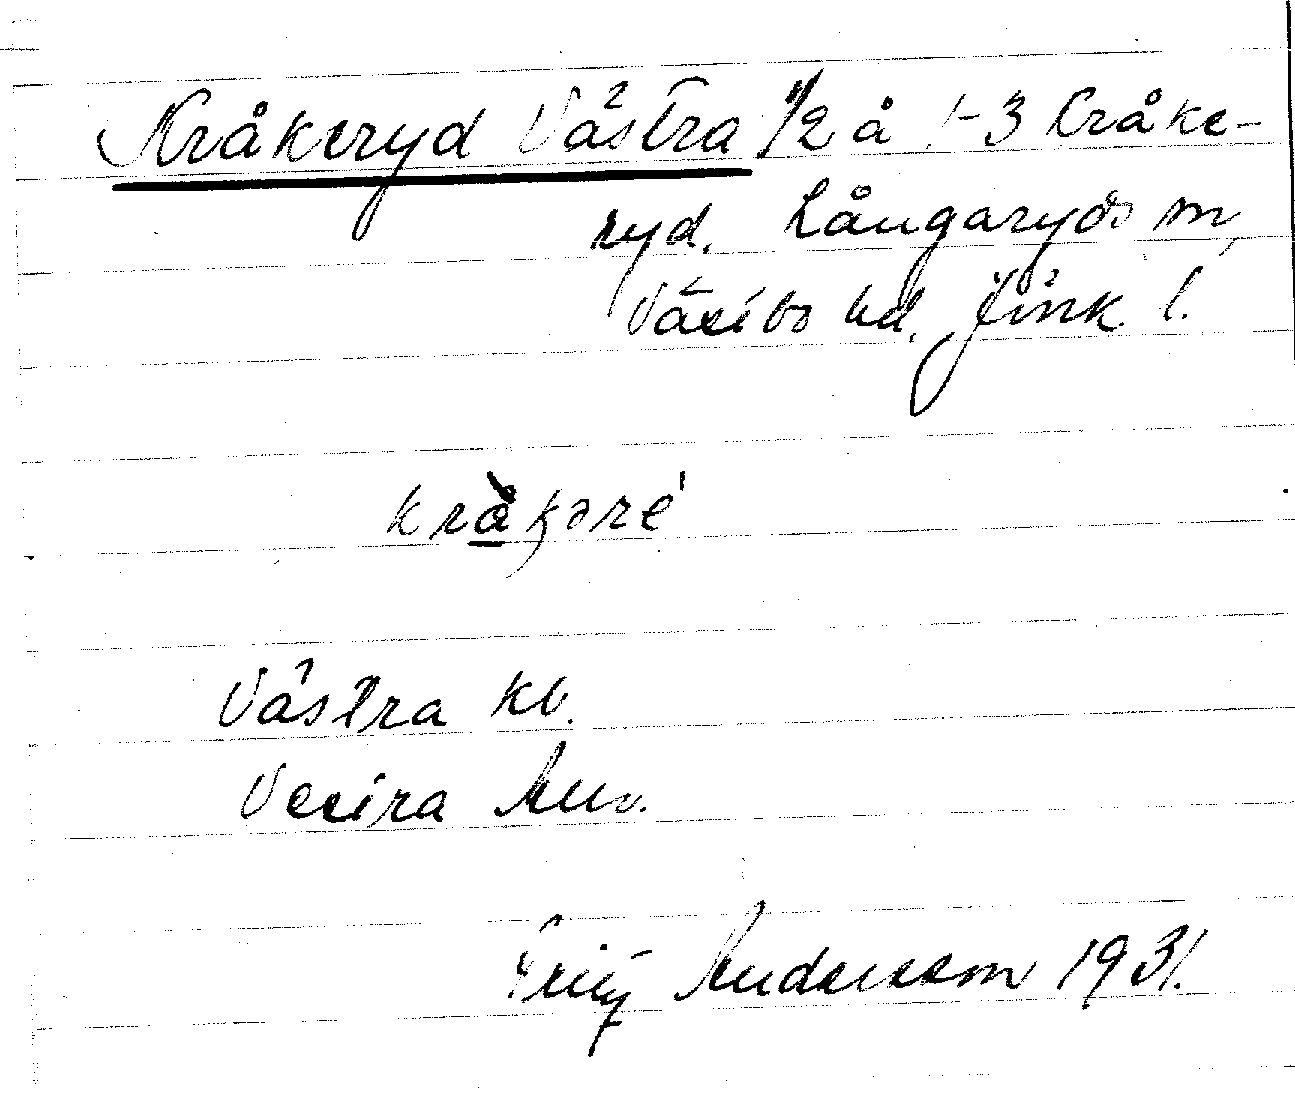 Kråkeryd Västra 1/2 å 1-3 Kråke-
ryd. Långaryds sn,
Västbo hd. Jönk. l.
kråkəré
Västra kb.
Vestra
Andersson 1931.